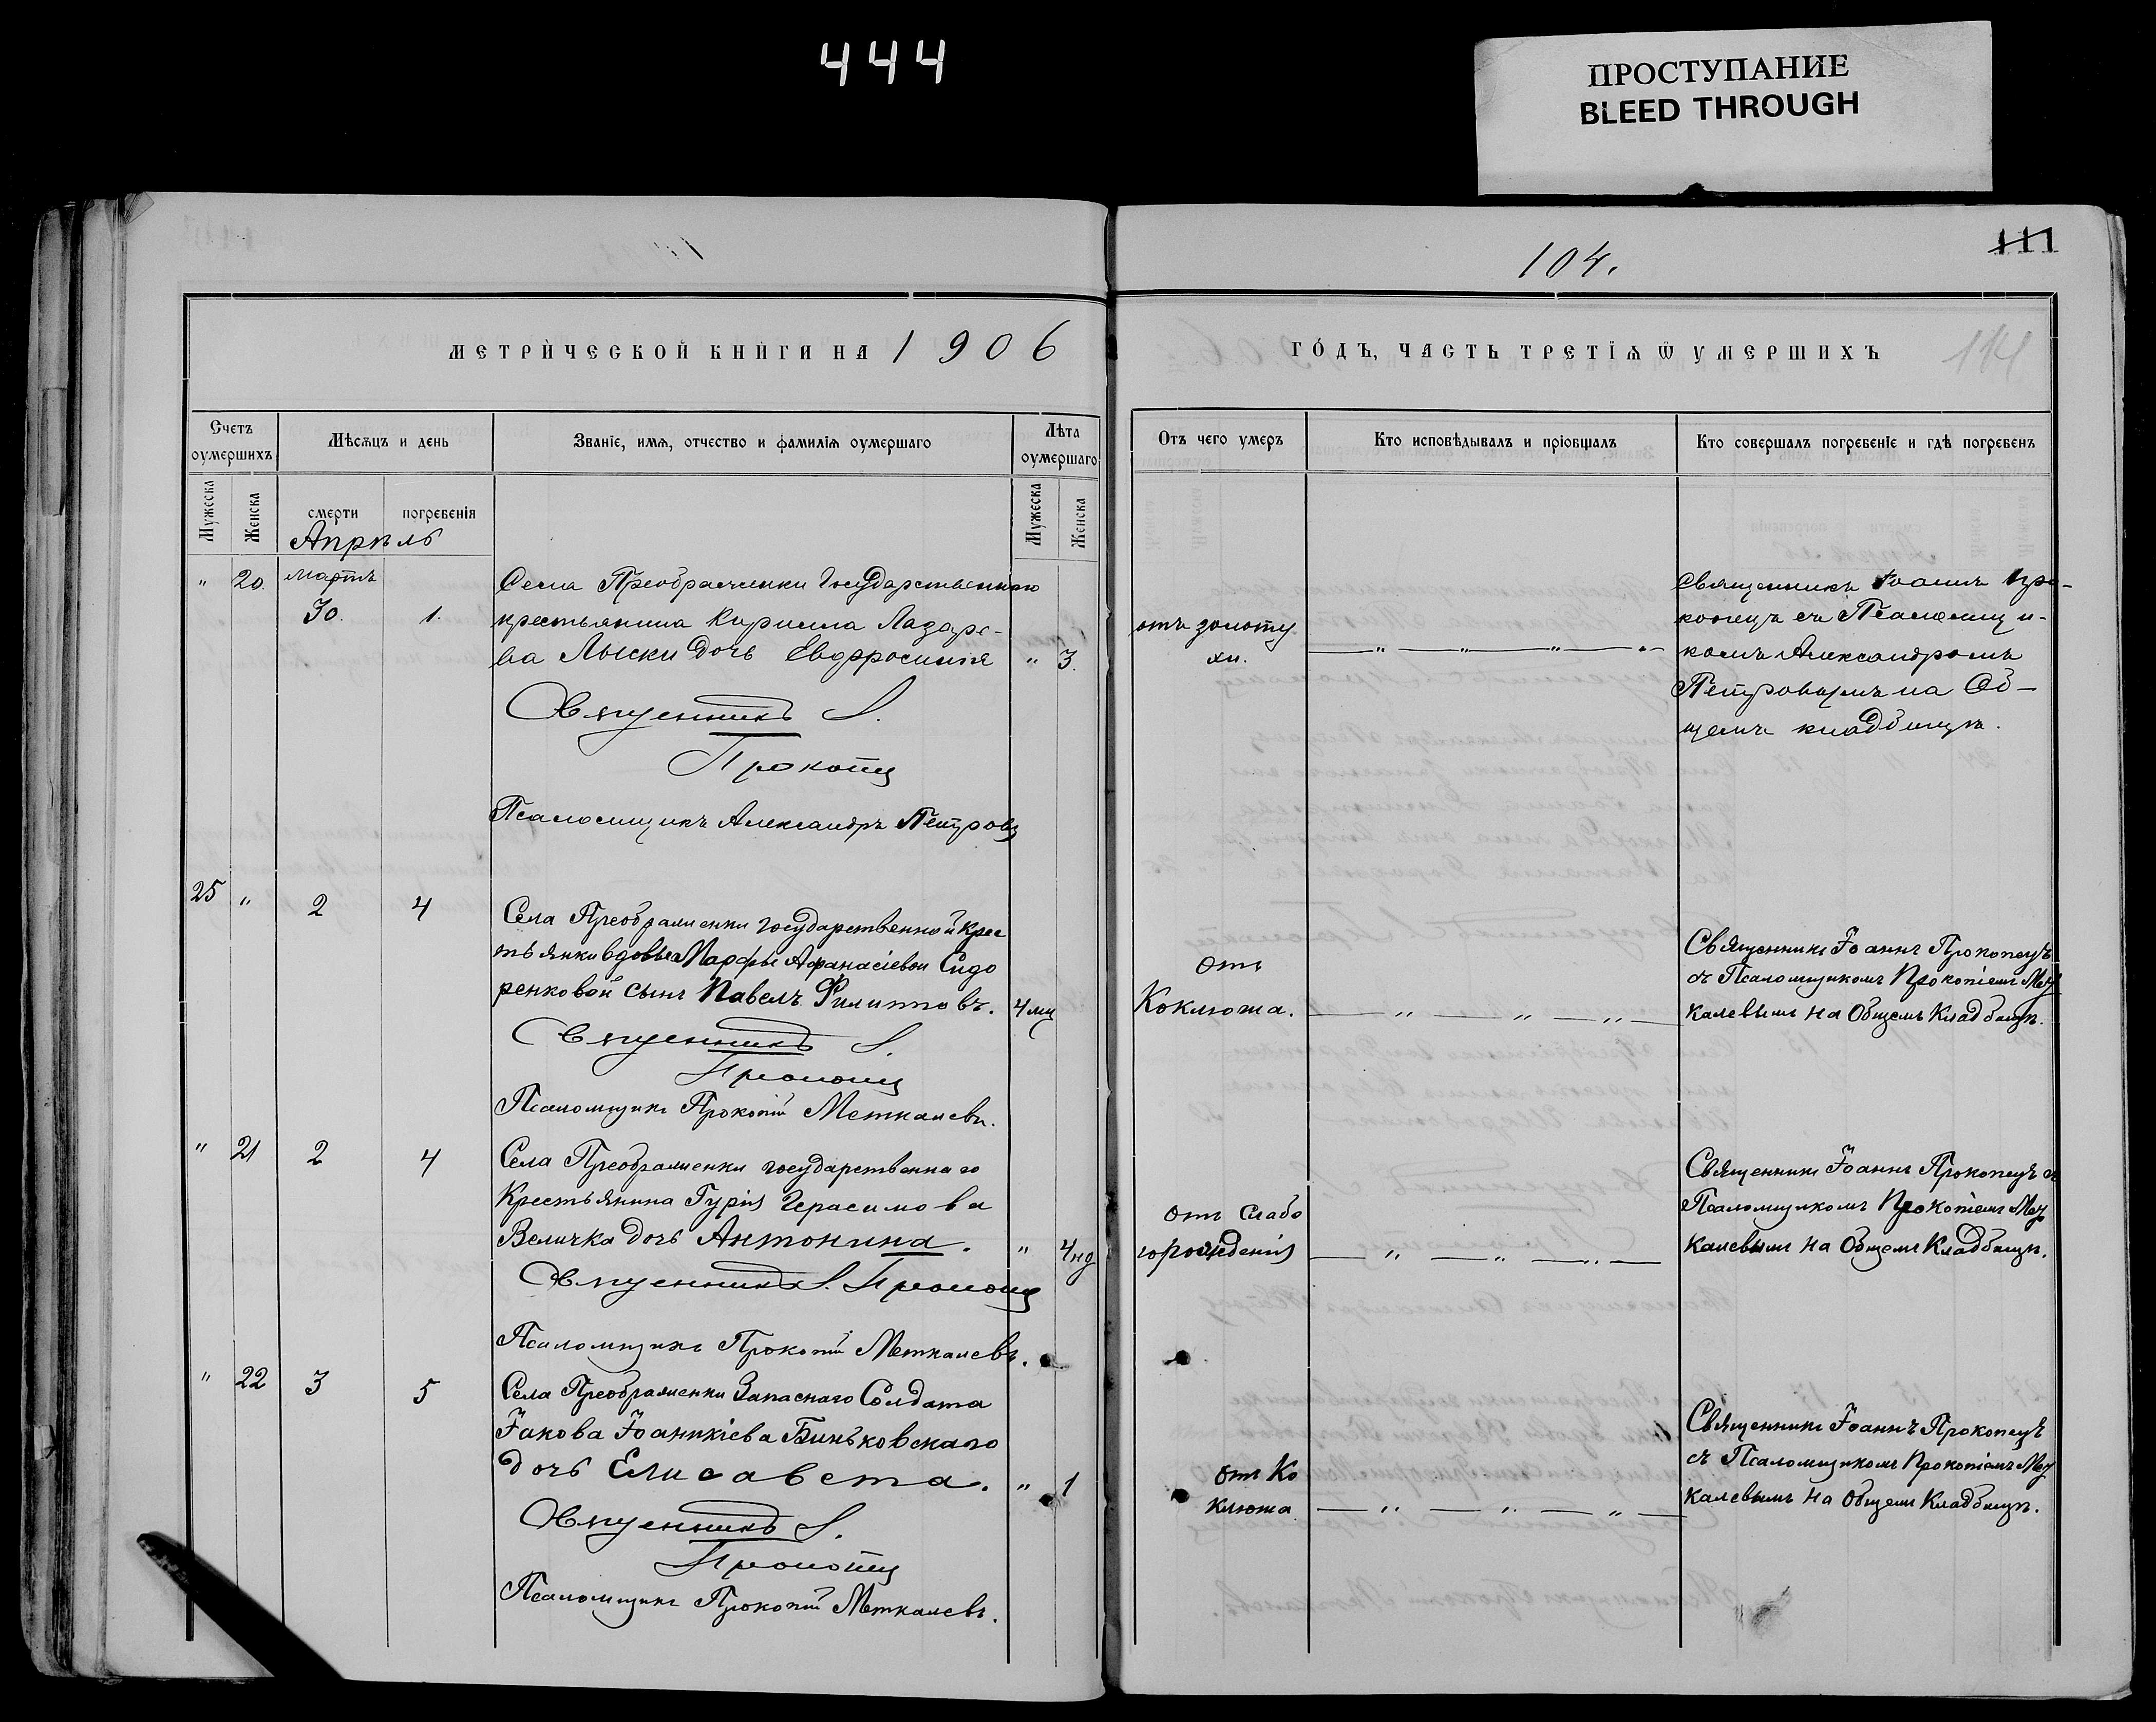 444
ПРОСТУПАНИЕ
BLEED THROUGH
111
104.
114
МЕТРИЧЕСКОЙ КНИГИ НА 1906
ГОДЪ, ЧАСТЬ ТРЕТІЯ Ѿ УМЕРШИХЪ
Счетъ оумершихъ
Мѣсяцъ и день
Званіе, имя, отчество и фамилія оумершаго
Лѣта оумершаго
Мужеска
Женска
смерти
погребенія
Мужеска
Женска
Апрѣль
" 20. мартъ
30. 1.
Села Преображенки Государственнаго
крестьянина Кирилла Лазаре-
ва Лыски дочь Евфросинія " 3.
Священникъ І.
Прокопец
Псаломщикъ Александръ Петровъ
25 " 2 4
Села Преображенки государственной крес
тьянки вдовы Марфы Афанасіевои Сидо
ренковой сынъ Павелъ Филипповъ. 4 мц
Священникъ І.
Прокопец
Псаломщикъ Прокопій Меткалевъ.
" 21 2 4
Села Преображенки государственнаго
Крестьянина Гурія Герасимова
Величка дочь Антонина. " 4 нд
Священникъ І. Прокопец
Псаломщикъ Прокопій Меткалевъ.
" 22 3 5
Села Преображенки Запаснаго Солдата
Іакова Іоаникіева Биньковскаго
дочь Елисавета. " 1
Священникъ І.
Прокопец
Псаломщикъ Прокопій Меткалевъ.
Отъ чего умеръ
Кто исповѣдывалъ и пріобщалъ
Кто совершалъ погребеніе и гдѣ погребенъ
отъ золоту
хи.
— " — " — " — " —
Священникъ Іоаннъ Про-
копецъ съ Псаломщи-
комъ Александромъ
Петровымъ на Об-
щемъ кладбищѣ.
Отъ
Коклюша.
— " — " — " —
Священникъ Іоаннъ Прокопецъ
съ Псаломщикомъ Прокопіемъ Мет
калевымъ на Общемъ Кладбищѣ.
Отъ Слабо
горожденія
— " — " — " —
Священникъ Іоаннъ Прокопецъ съ
Псаломщикомъ Прокопіемъ Мет
калевымъ на Общемъ Кладбищѣ.
Отъ Ко
клюша.
— " — " — " —
Священникъ Іоаннъ Прокопецъ
съ Псаломщикомъ Прокопіемъ Мет
калевымъ на Общемъ Кладбищѣ.